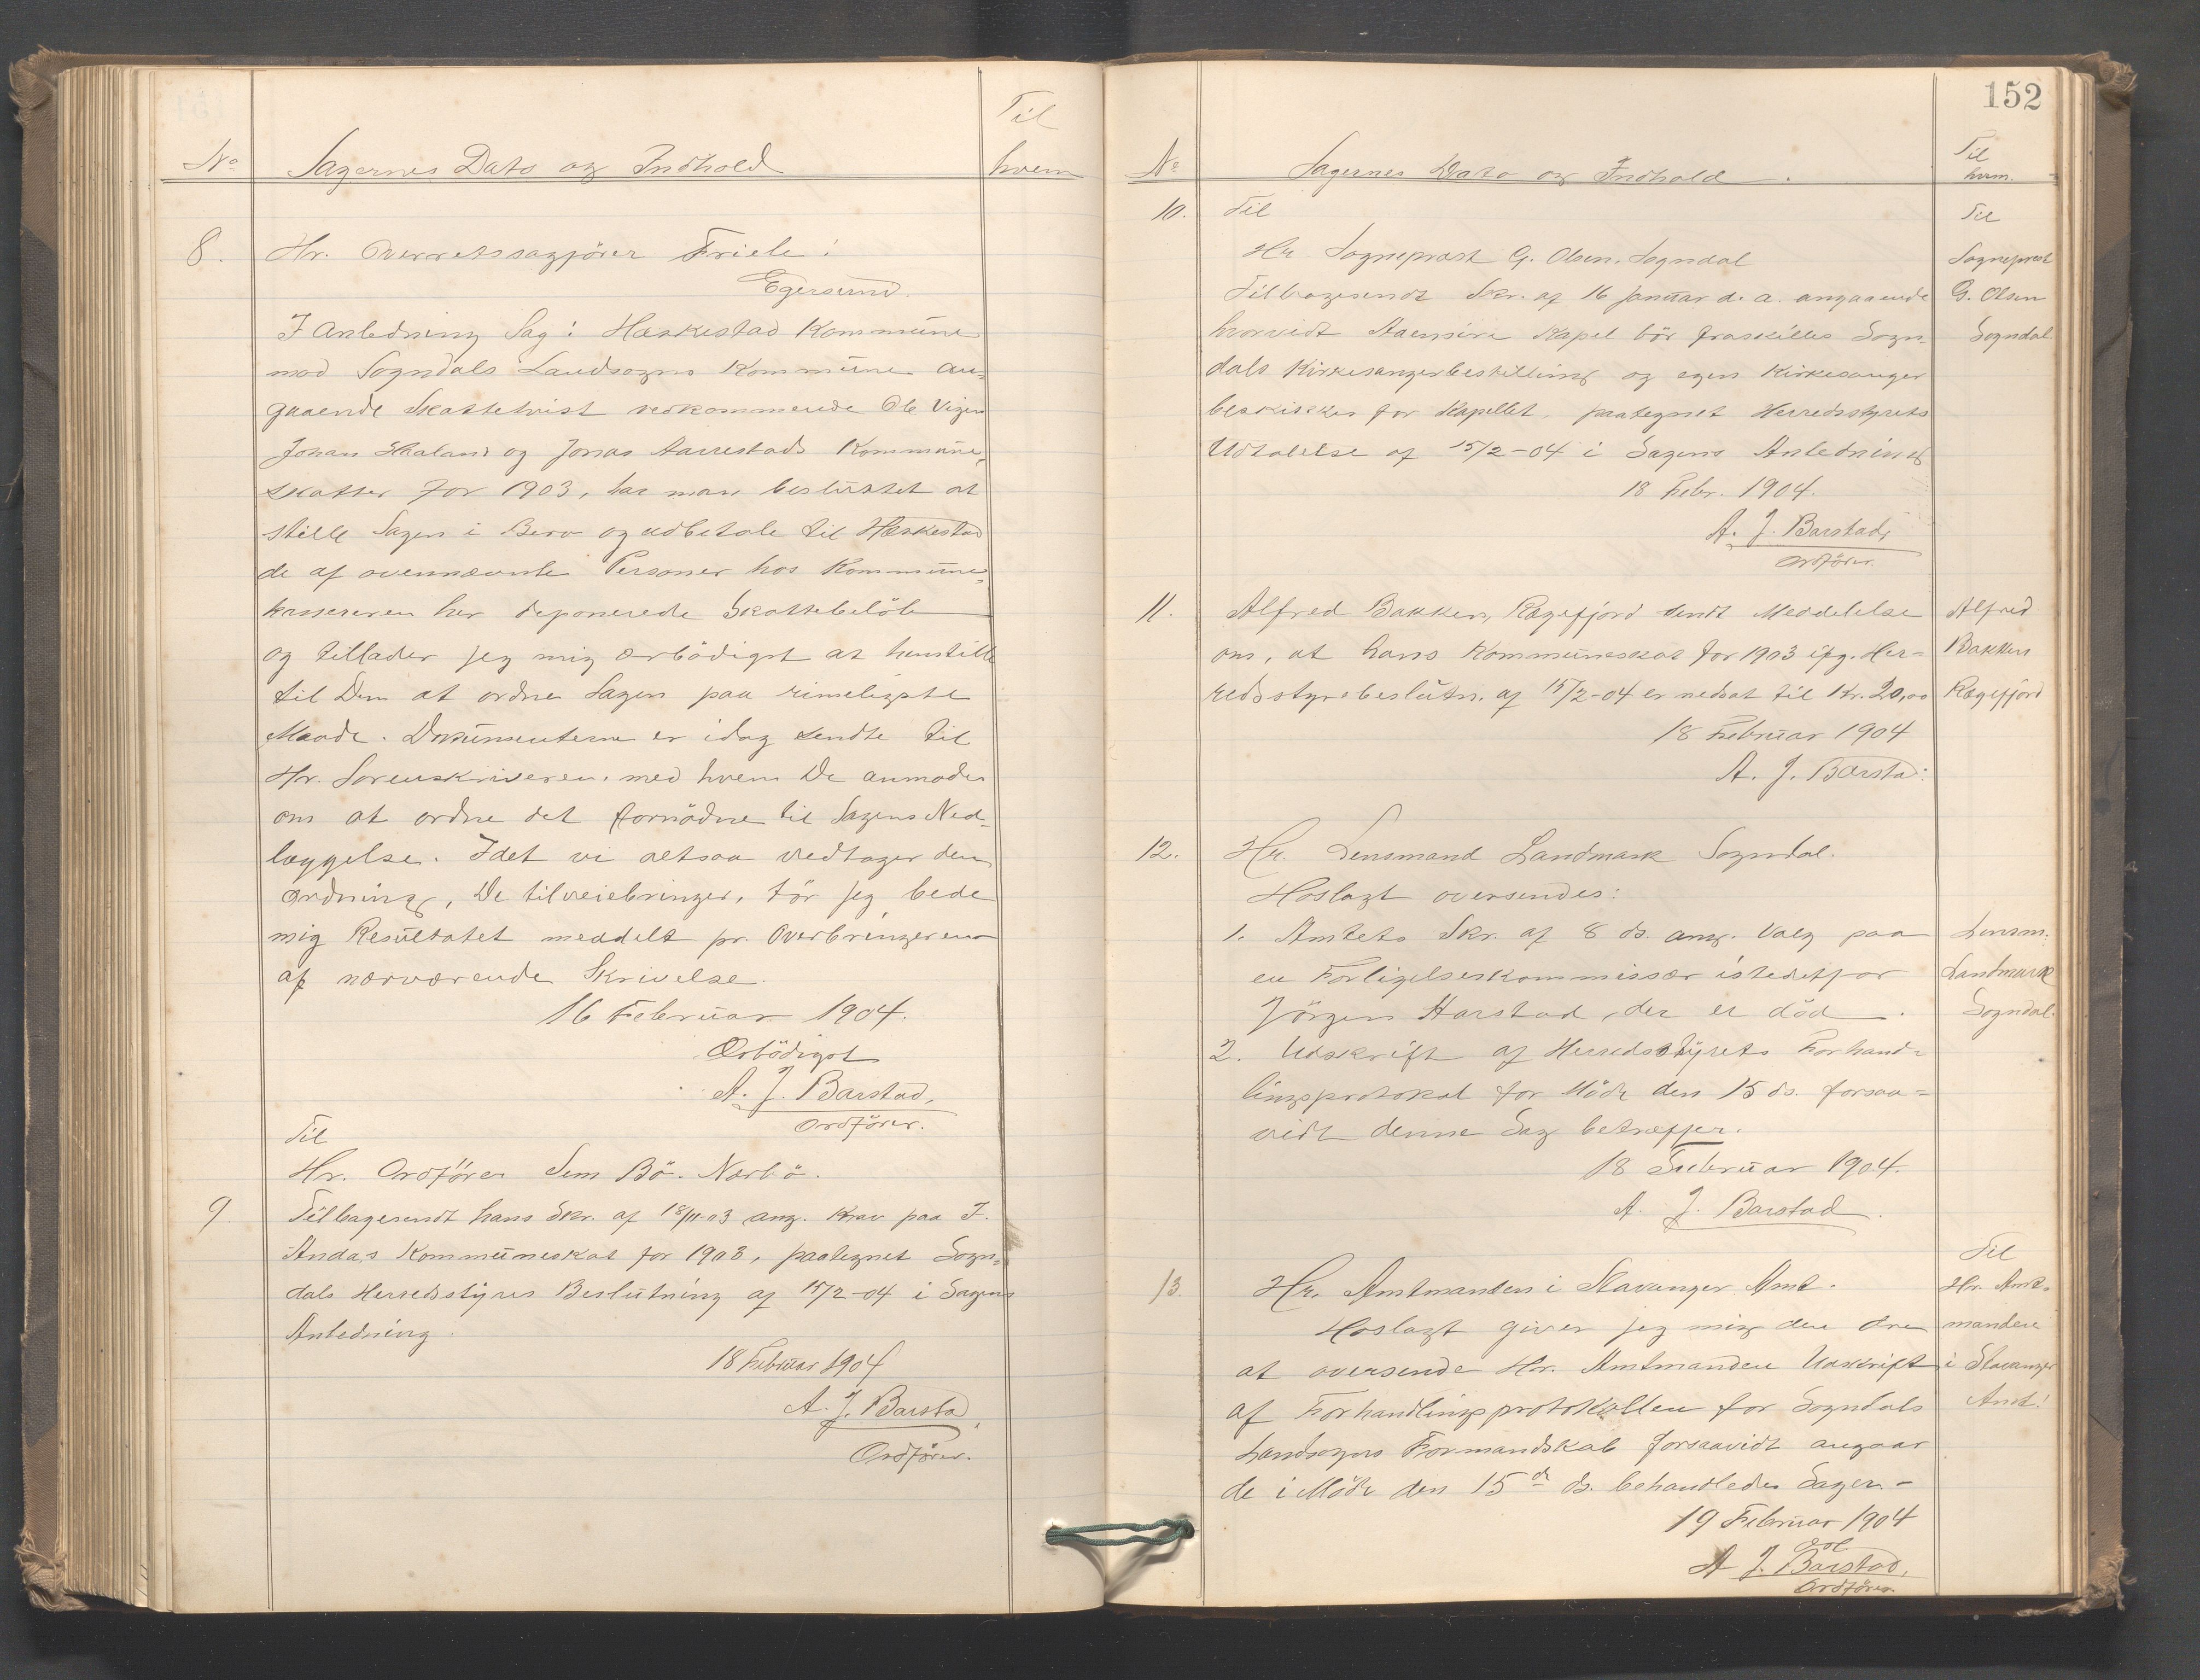 No
Sagernes Dato og Indhold
Til
hvem
8.
Hr. Overretssagförer Friele!
Egersund.
I Anledning Sag: Heskestad Kommune
mod Sogndals Landsogns Kommune an-
gaaende Skattetvist vedkommende Ole Vigen
Johan Haaland og Jonas Aarrestads Kommune-
skatter for 1903, har man besluttet at
stille Sagen i Bero og udbetale til Heskestad
de af ovennævnte Personer hos Kommune-
kassereren her deponerede Skattebelöb
og tillader jeg mig ærbödigst at henstille
til Dem at ordne Sagen paa rimeligste
Maade. Dokumenterne er idag sendte til
Hr. Sorenskriveren, med hvem De anmodes
om at ordne det fornödne til Sagens Ned-
læggelse. Idet vi altsaa vedtager den
Ordning, De tilveiebringer, tör jeg bede
mig Resultatet meddelt pr. Overbringeren
af nærværende Skrivelse.
16 Februar 1904.
Ærbödigst
A. J. Barstad,
Ordförer.
Til
Hr. Ordförer Sem Bö. Nærbö.
9
Tilbagesendt hans Skr. af 18/11-03 ang. Krav paa T.
Andas Kommuneskat for 1903, paategnet Sogn-
dals Herredsstyres Beslutning af 15/2-04 i Sagens
Anledning.
18 Februar 1904
A. J. Barsta
Ordförer.
152
No
Sagernes Dato og Indhold.
Til
hvem.
10.
Til
Til
Hr Sogneprest G. Olsen, Sogndal
Sogneprest
Tilbagesendt Skr. af 16 januar d. a. angaaende
G. Olsen
hvorvidt Aaensire Kapel bör fraskilles Sogn-
Sogndal
dals Kirkesangerbestilling og egen Kirkesanger
beskikkes for Kapellet, paategnet Herredsstyrets
Udtalelse af 15/2-04 i Sagens Anledning
18 Febr. 1904.
A. J. Barstad,
Ordförer.
11.
Alfred Bakken, Rægefjord sendt Meddelelse
Alfred
om, at hans Kommuneskat for 1903 ifg. Her-
Bakken
redsstyrebeslutn. af 15/2-04 er nedsat til Kr. 20,00
Rægefjord
18 Februar 1904
A. J. Barstad:
12.
Hr. Lensmand Landmark Sogndal.
Hoslagt oversendes:
1. Amtets Skr. af 8 ds. ang. Valg paa
Lensm.
en Forligelseskommissær istedetfor
Landmark
Jörgen Harstad, der er död.
Sogndal.
2. Udskrift af Herredsstyrets Forhand-
lingsprotokol for Möde den 15 ds. forsaa-
vidt denne Sag betræffer.
18 Februar 1904.
A. J. Barstad.
13.
Til
Hr. Amtmanden i Stavanger Amt.
Hr. Amt-
Hoslagt giver jeg mig den Ære
manden
at oversende Hr. Amtmanden Udskrift
i Stavanger
af Forhandlingsprotokollen for Sogndals
Amt!
Landsogns Formandskab forsaavidt angaar
de i Möde den 15de ds. behandlede Sager.-
19 Februar 1904
A J. Barstad,
Ordförer.